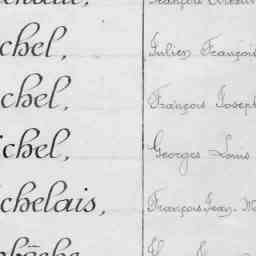 chel, Julien François
chel, François Joseph
ichel, Georges Louis
chelais, François Jean. M